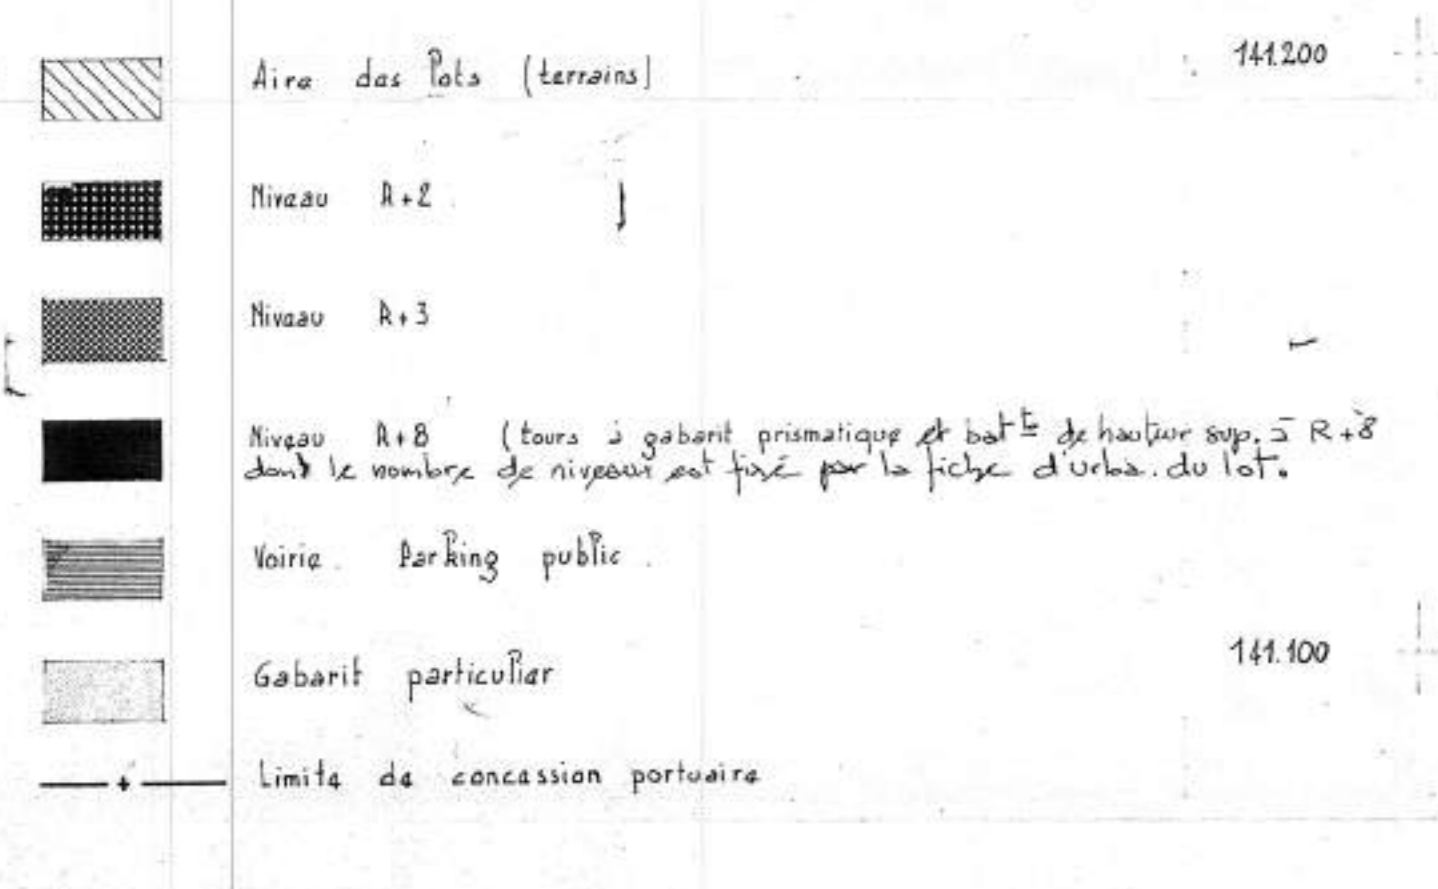 Aire des lots (terrains)
141.200
Niveau R+2
Niveau R+3
Niveau R+8 (tours à gabarit prismatique et bat ts de hauteur sup. à R+8
dont le nombre de niveaux est fixé par la fiche d'urba. du lot.
Voirie Parking public
141.100
Gabarit particulier
Limite de concession portuaire